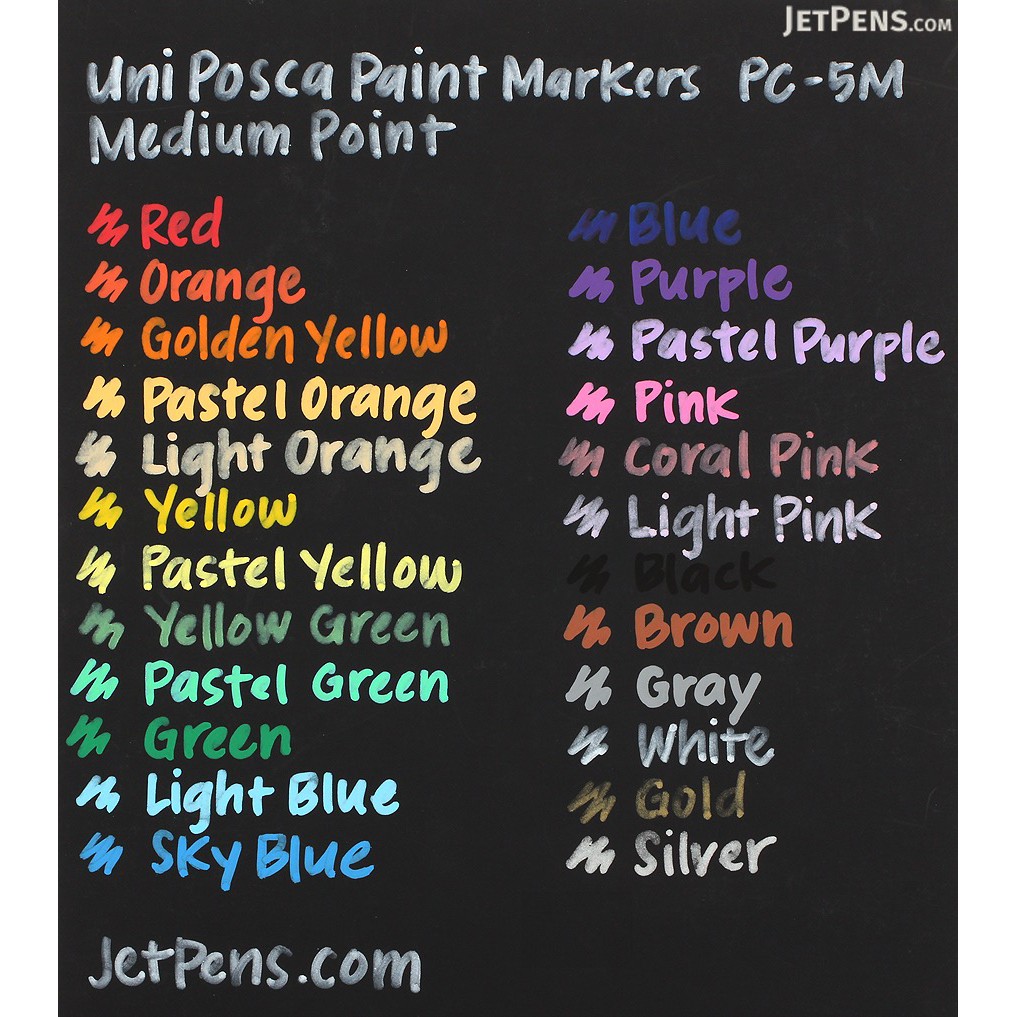 JetPens.com
Uni Posca Paint Markers PC-5M
Medium Point
Red
Orange
Golden Yellow
Pastel Orange
Light Orange
Yellow
Pastel Yellow
Yellow Green
Pastel Green
Green
Light Blue
Sky Blue
Blue
Purple
Pastel Purple
Pink
Coral Pink
Light Pink
Black
Brown
Gray
White
Gold
Silver
JetPens.com